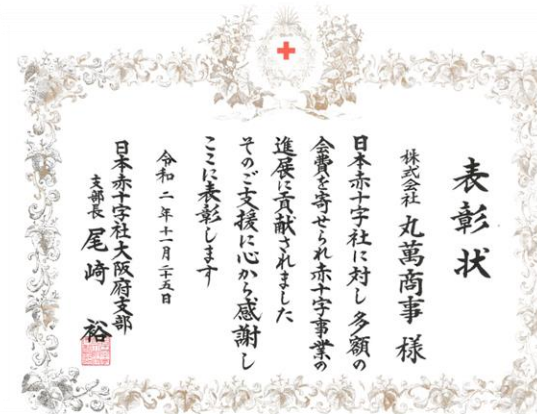 表彰状
株式会社 丸萬商事 様
日本赤十字社に対し多額の
会費を寄せられ赤十字事業の
進展に貢献されました
そのご支援に心から感謝し
ここに表彰します
令和二年十一月二十五日
日本赤十字社大阪府支部
支部長 尾崎 裕